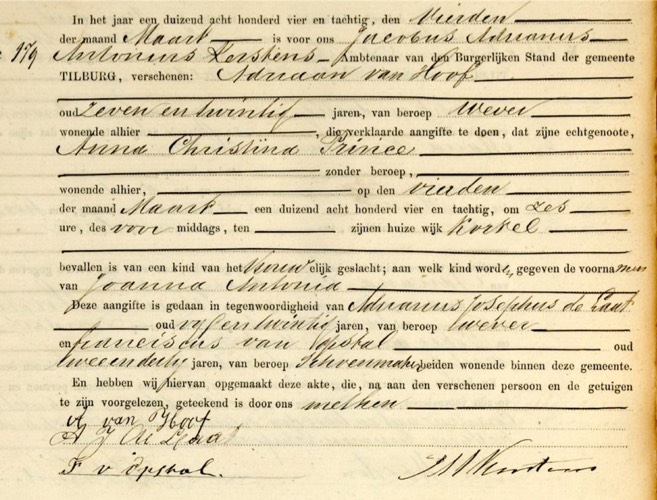 In het jaar een duizend acht honderd vier en tachtig, den Vierden
der maand Maart is voor ons Jacobus Adrianus
179 Antonius Kerstens Ambtenaar van den Burgerlijken Stand der gemeente
TILBURG, verschenen: Adriaan van Hoof
oud zeven en twintig jaren, van beroep wever
wonende alhier, die verklaarde aangifte te doen, dat zijne echtgenoote,
Anna Christina Prince
zonder beroep,
wonende alhier, op den vierden
der maand Maart een duizend acht honderd vier en tachtig, om zes
ure, des voor middags, ten zijnen huize wijk Korvel
bevallen is van een kind van het vrouwelijk geslacht; aan welk kind worden gegeven de voornamen
van Joanna Antonia
Deze aangifte is gedaan in tegenwoordigheid van Adrianus Josephus de Laat
oud vijf en twintig jaren, van beroep wever
en Franciscus van Opstal oud
twee en dertig jaren, van beroep Schoenmaker, beiden wonende binnen deze gemeente.
En hebben wij hiervan opgemaakt deze akte, die, na aan den verschenen persoon en de getuigen
te zijn voorgelezen, geteekend is door ons met hen
A van Hoof
A J de Laat
F v Opstal.
JAA Kerstens